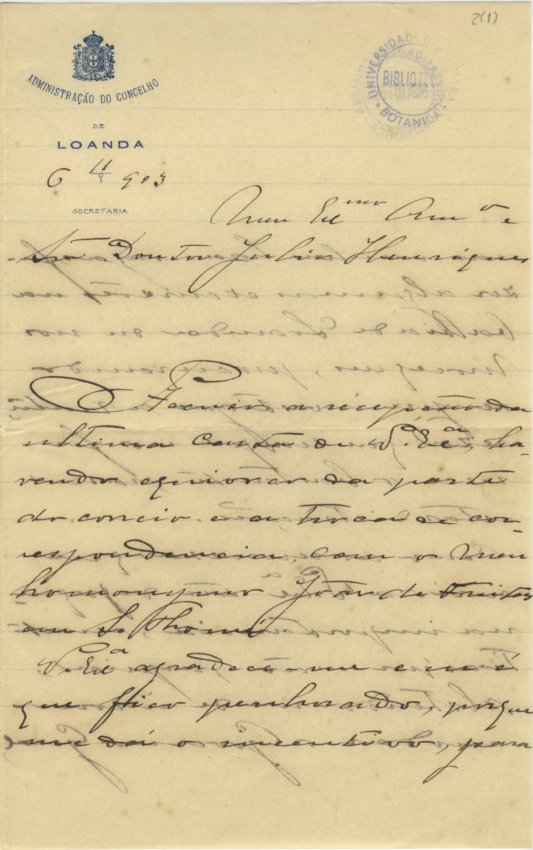 2(1)
ADMINISTRAÇÃO DO CONCELHO
DE
LOANDA
6 11/9 903
SECRETARIA
UNIVERSIDADE DE
BIBLIOTECA
BOTANICA
Meu Exmo Amº e
Snr Doutor Julio Henriques
a recepção da
ultima carta de V. Exª, ha-
vendo equivoco da parte
do correio e a troca de cor-
respondencia, com o meu
homonymo João de Freitas
em S. Thomé
V. Exª agradece-me e eu é
que fico penhorado, porque
me dá o incentivo, para